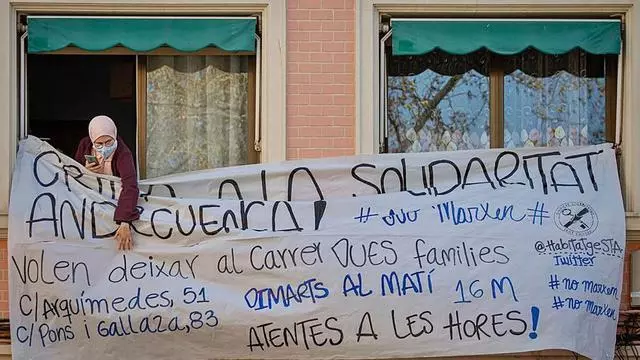 CRIDA A LA SOLIDARITAT
ANDECUENCA!
# JUV Marxen #
Volen deixar al carrer DUES famílies
C/Arquímedes, 51
C/Pons i Gallaza, 83
DIMARTS AL MATÍ 16M
ATENTES A LES HORES!
@HabitatgeSTA
Twitter
#no marxem
#no marxem